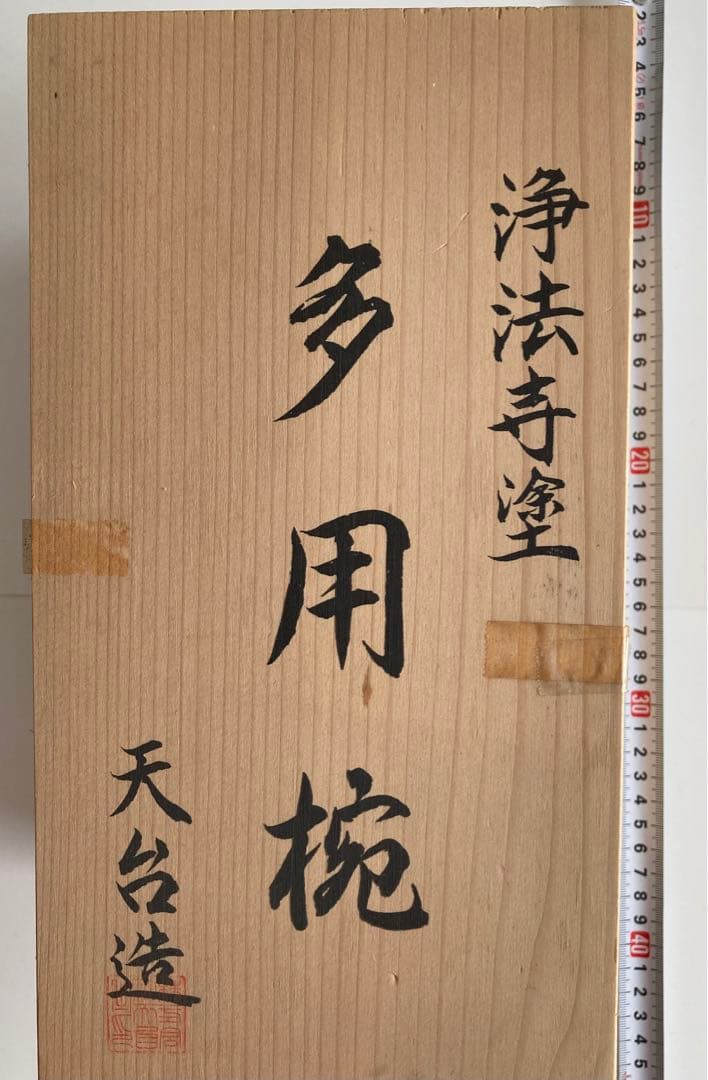 浄法寺塗
多用椀
天台造
2
3
4
5
6
7
8
9
10
1
2
3
4
5
6
7
8
9
20
1
2
3
4
5
6
7
8
9
30
1
2
3
4
5
6
7
8
9
40
1
2
3
4
5